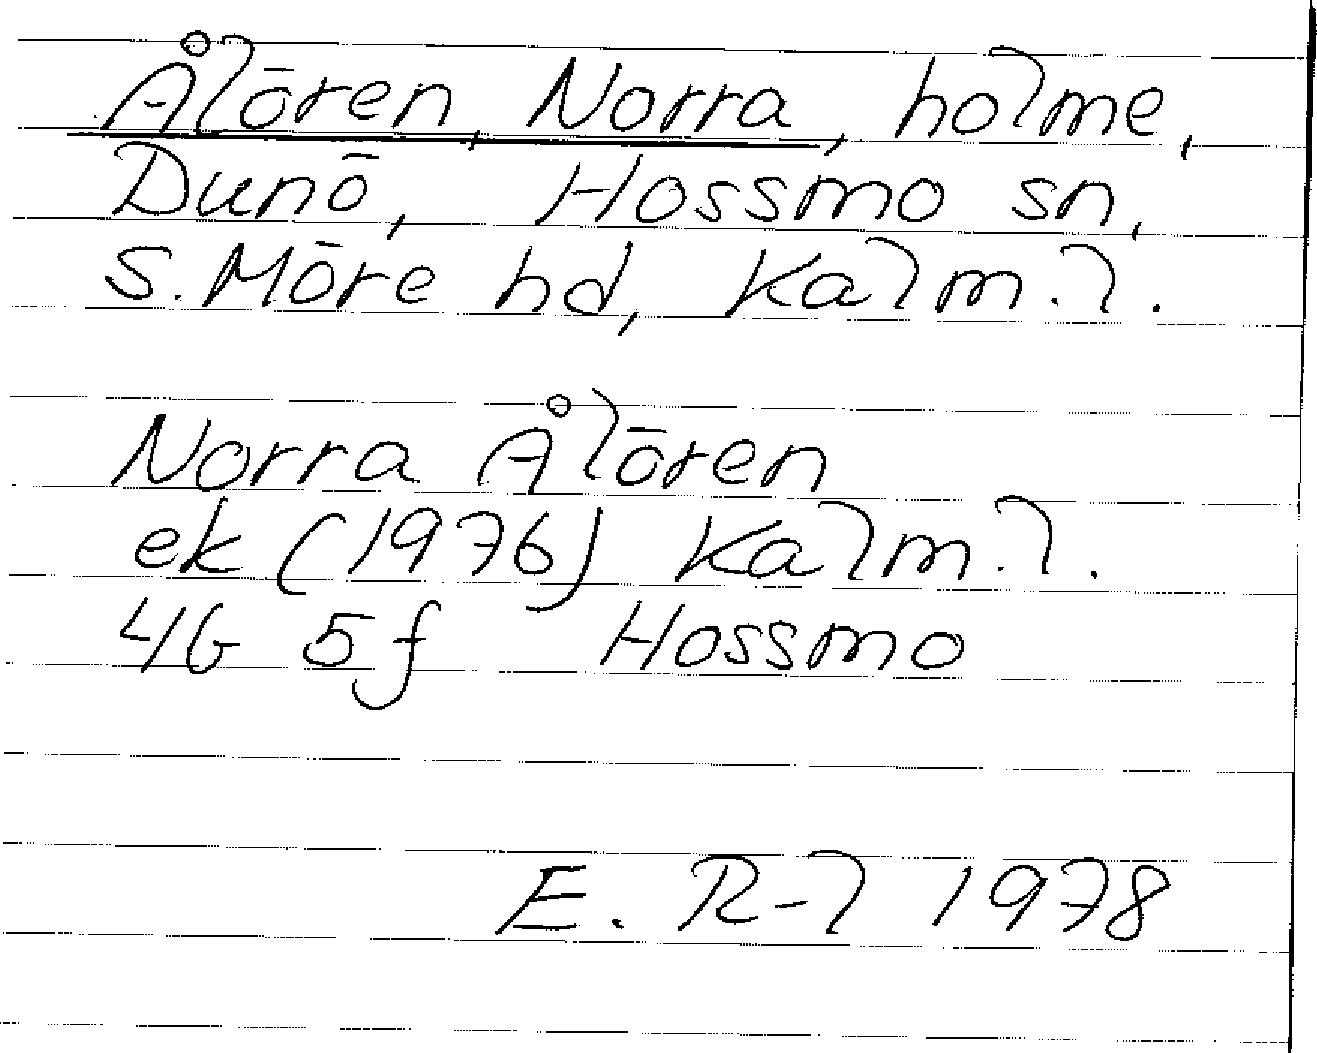 Ålören, Norra, holme,
Dunö, Hossmo sn,
S. Möre hd, Kalm. l.
Norra Ålören
ek (1976) Kalm. l.
4G 5f Hossmo
E. R-l 1978